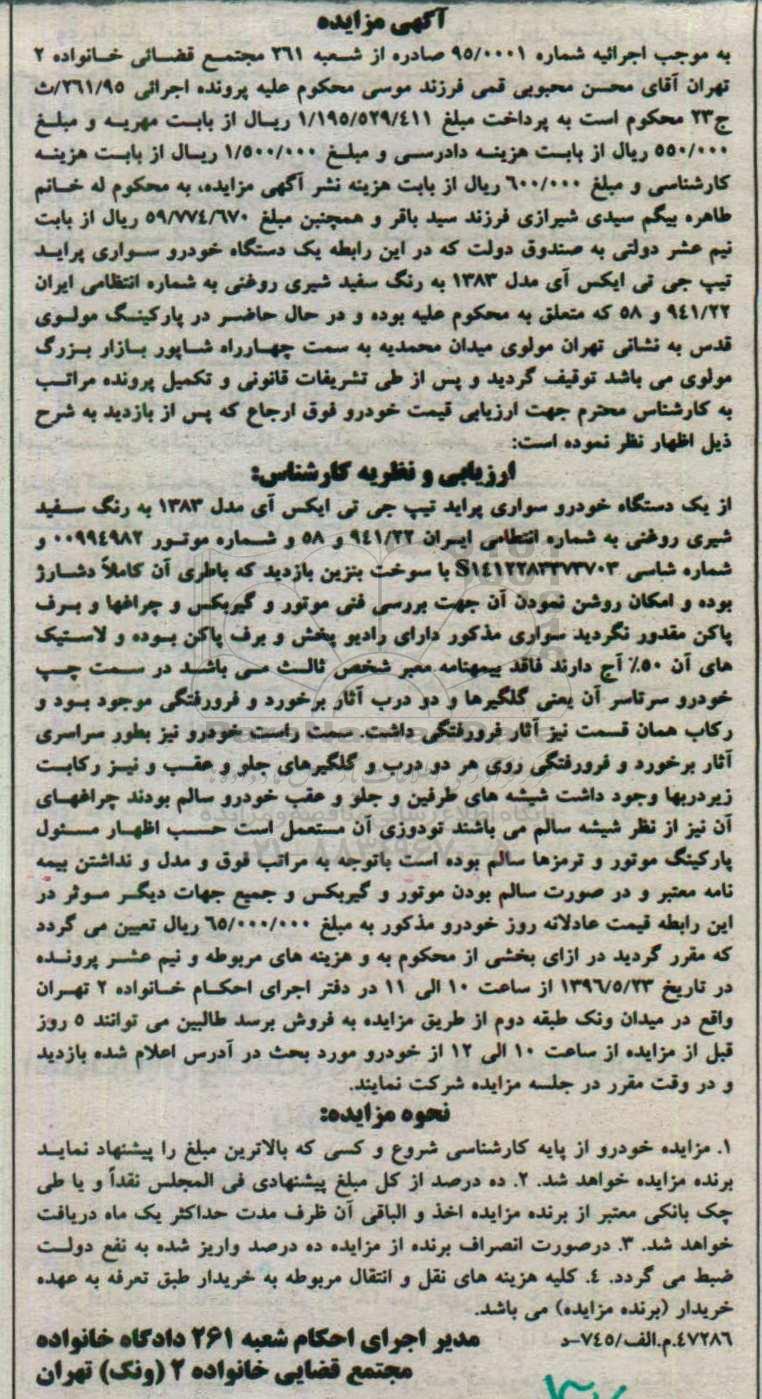 آگهی مزایده
به موجب اجرائیه شماره ۹۵/۰۰۰۱ صادره از شعبه ۲۶۱ مجتمع قضائی خانواده ۲
تهران آقای محسن محبوبی قمی فرزند موسی محکوم علیه پرونده اجرائی ۲۶۱/۹۵/ث
ج۲۳ محکوم است به پرداخت مبلغ ۱/۱۹۵/۵۲۹/۴۱۱ ریال از بابت مهریه و مبلغ
۵۵۰/۰۰۰ ریال از بابت هزینه دادرسی و مبلغ ۱/۵۰۰/۰۰۰ ریال از بابت هزینه
کارشناسی و مبلغ ۶۰۰/۰۰۰ ریال از بابت هزینه نشر آگهی مزایده، به محکوم له خانم
طاهره بیگم سیدی شیرازی فرزند سید باقر و همچنین مبلغ ۵۹/۷۷۴/۶۷۰ ریال از بابت
نیم عشر دولتی به صندوق دولت که در این رابطه یک دستگاه خودرو سواری پراید
تیپ جی تی ایکس آی مدل ۱۳۸۳ به رنگ سفید شیری روغنی به شماره انتظامی ایران
۹۴۱/۲۲ و ۵۸ که متعلق به محکوم علیه بوده و در حال حاضر در پارکینگ مولوی
قدس به نشانی تهران مولوی میدان محمدیه به سمت چهارراه شاپور بازار بزرگ
مولوی می باشد توقیف گردید و پس از طی تشریفات قانونی و تکمیل پرونده مراتب
به کارشناس محترم جهت ارزیابی قیمت خودرو فوق ارجاع که پس از بازدید به شرح
ذیل اظهار نظر نموده است:
ارزیابی و نظریه کارشناس:
از یک دستگاه خودرو سواری پراید تیپ جی تی ایکس آی مدل ۱۳۸۳ به رنگ سفید
شیری روغنی به شماره انتظامی ایران ۹۴۱/۲۲ و ۵۸ و شماره موتور ۰۰۹۹۴۹۸۲ و
شماره شاسی S۱۴۱۲۲۸۳۳۷۳۷۰۳ با سوخت بنزین بازدید که باطری آن کاملاً دشارژ
بوده و امکان روشن نمودن آن جهت بررسی فنی موتور و گیربکس و چراغها و برف
پاکن مقدور نگردید سواری مذکور دارای رادیو پخش و برف پاکن بوده و لاستیک
های آن ۵۰٪ آج دارند فاقد بیمهنامه معبر شخص ثالث می باشد در سمت چپ
خودرو سرتاسر آن یعنی گلگیرها و دو درب آثار برخورد و فرورفتگی موجود بود و
رکاب همان قسمت نیز آثار فرورفتگی داشت. سمت راست خودرو نیز بطور سراسری
آثار برخورد و فرورفتگی روی هر دو درب و گلگیرهای جلو و عقب و نیز رکابت
زیردربها وجود داشت شیشه های طرفین و جلو و عقب خودرو سالم بودند چراغهای
آن نیز از نظر شیشه سالم می باشند تودوزی آن مستعمل است حسب اظهار مسئول
پارکینگ موتور و ترمزها سالم بوده است باتوجه به مراتب فوق و مدل و نداشتن بیمه
نامه معتبر و در صورت سالم بودن موتور و گیربکس و جمیع جهات دیگر موثر در
این رابطه قیمت عادلانه روز خودرو مذکور به مبلغ ۶۵/۰۰۰/۰۰۰ ریال تعیین می گردد
که مقرر گردید در ازای بخشی از محکوم به و هزینه های مربوطه و نیم عشر پرونده
در تاریخ ۱۳۹۶/۵/۲۳ از ساعت ۱۰ الی ۱۱ در دفتر اجرای احکام خانواده ۲ تهران
واقع در میدان ونک طبقه دوم از طریق مزایده به فروش برسد طالبین می توانند ۵ روز
قبل از مزایده از ساعت ۱۰ الی ۱۲ از خودرو مورد بحث در آدرس اعلام شده بازدید
و در وقت مقرر در جلسه مزایده شرکت نمایند.
نحوه مزایده:
۱. مزایده خودرو از پایه کارشناسی شروع و کسی که بالاترین مبلغ را پیشنهاد نماید
برنده مزایده خواهد شد. ۲. ده درصد از کل مبلغ پیشنهادی فی المجلس نقداً و یا طی
چک بانکی معتبر از برنده مزایده اخذ و الباقی آن ظرف مدت حداکثر یک ماه دریافت
خواهد شد. ۳. درصورت انصراف برنده از مزایده ده درصد واریز شده به نفع دولت
ضبط می گردد. ٤. کلیه هزینه های نقل و انتقال مربوطه به خریدار طبق تعرفه به عهده
خریدار (برنده مزایده) می باشد.
۴۷۲۸۶.م.الف/۷۴۵-د
مدیر اجرای احکام شعبه ۲۶۱ دادگاه خانواده
مجتمع قضایی خانواده ۲ (ونک) تهران